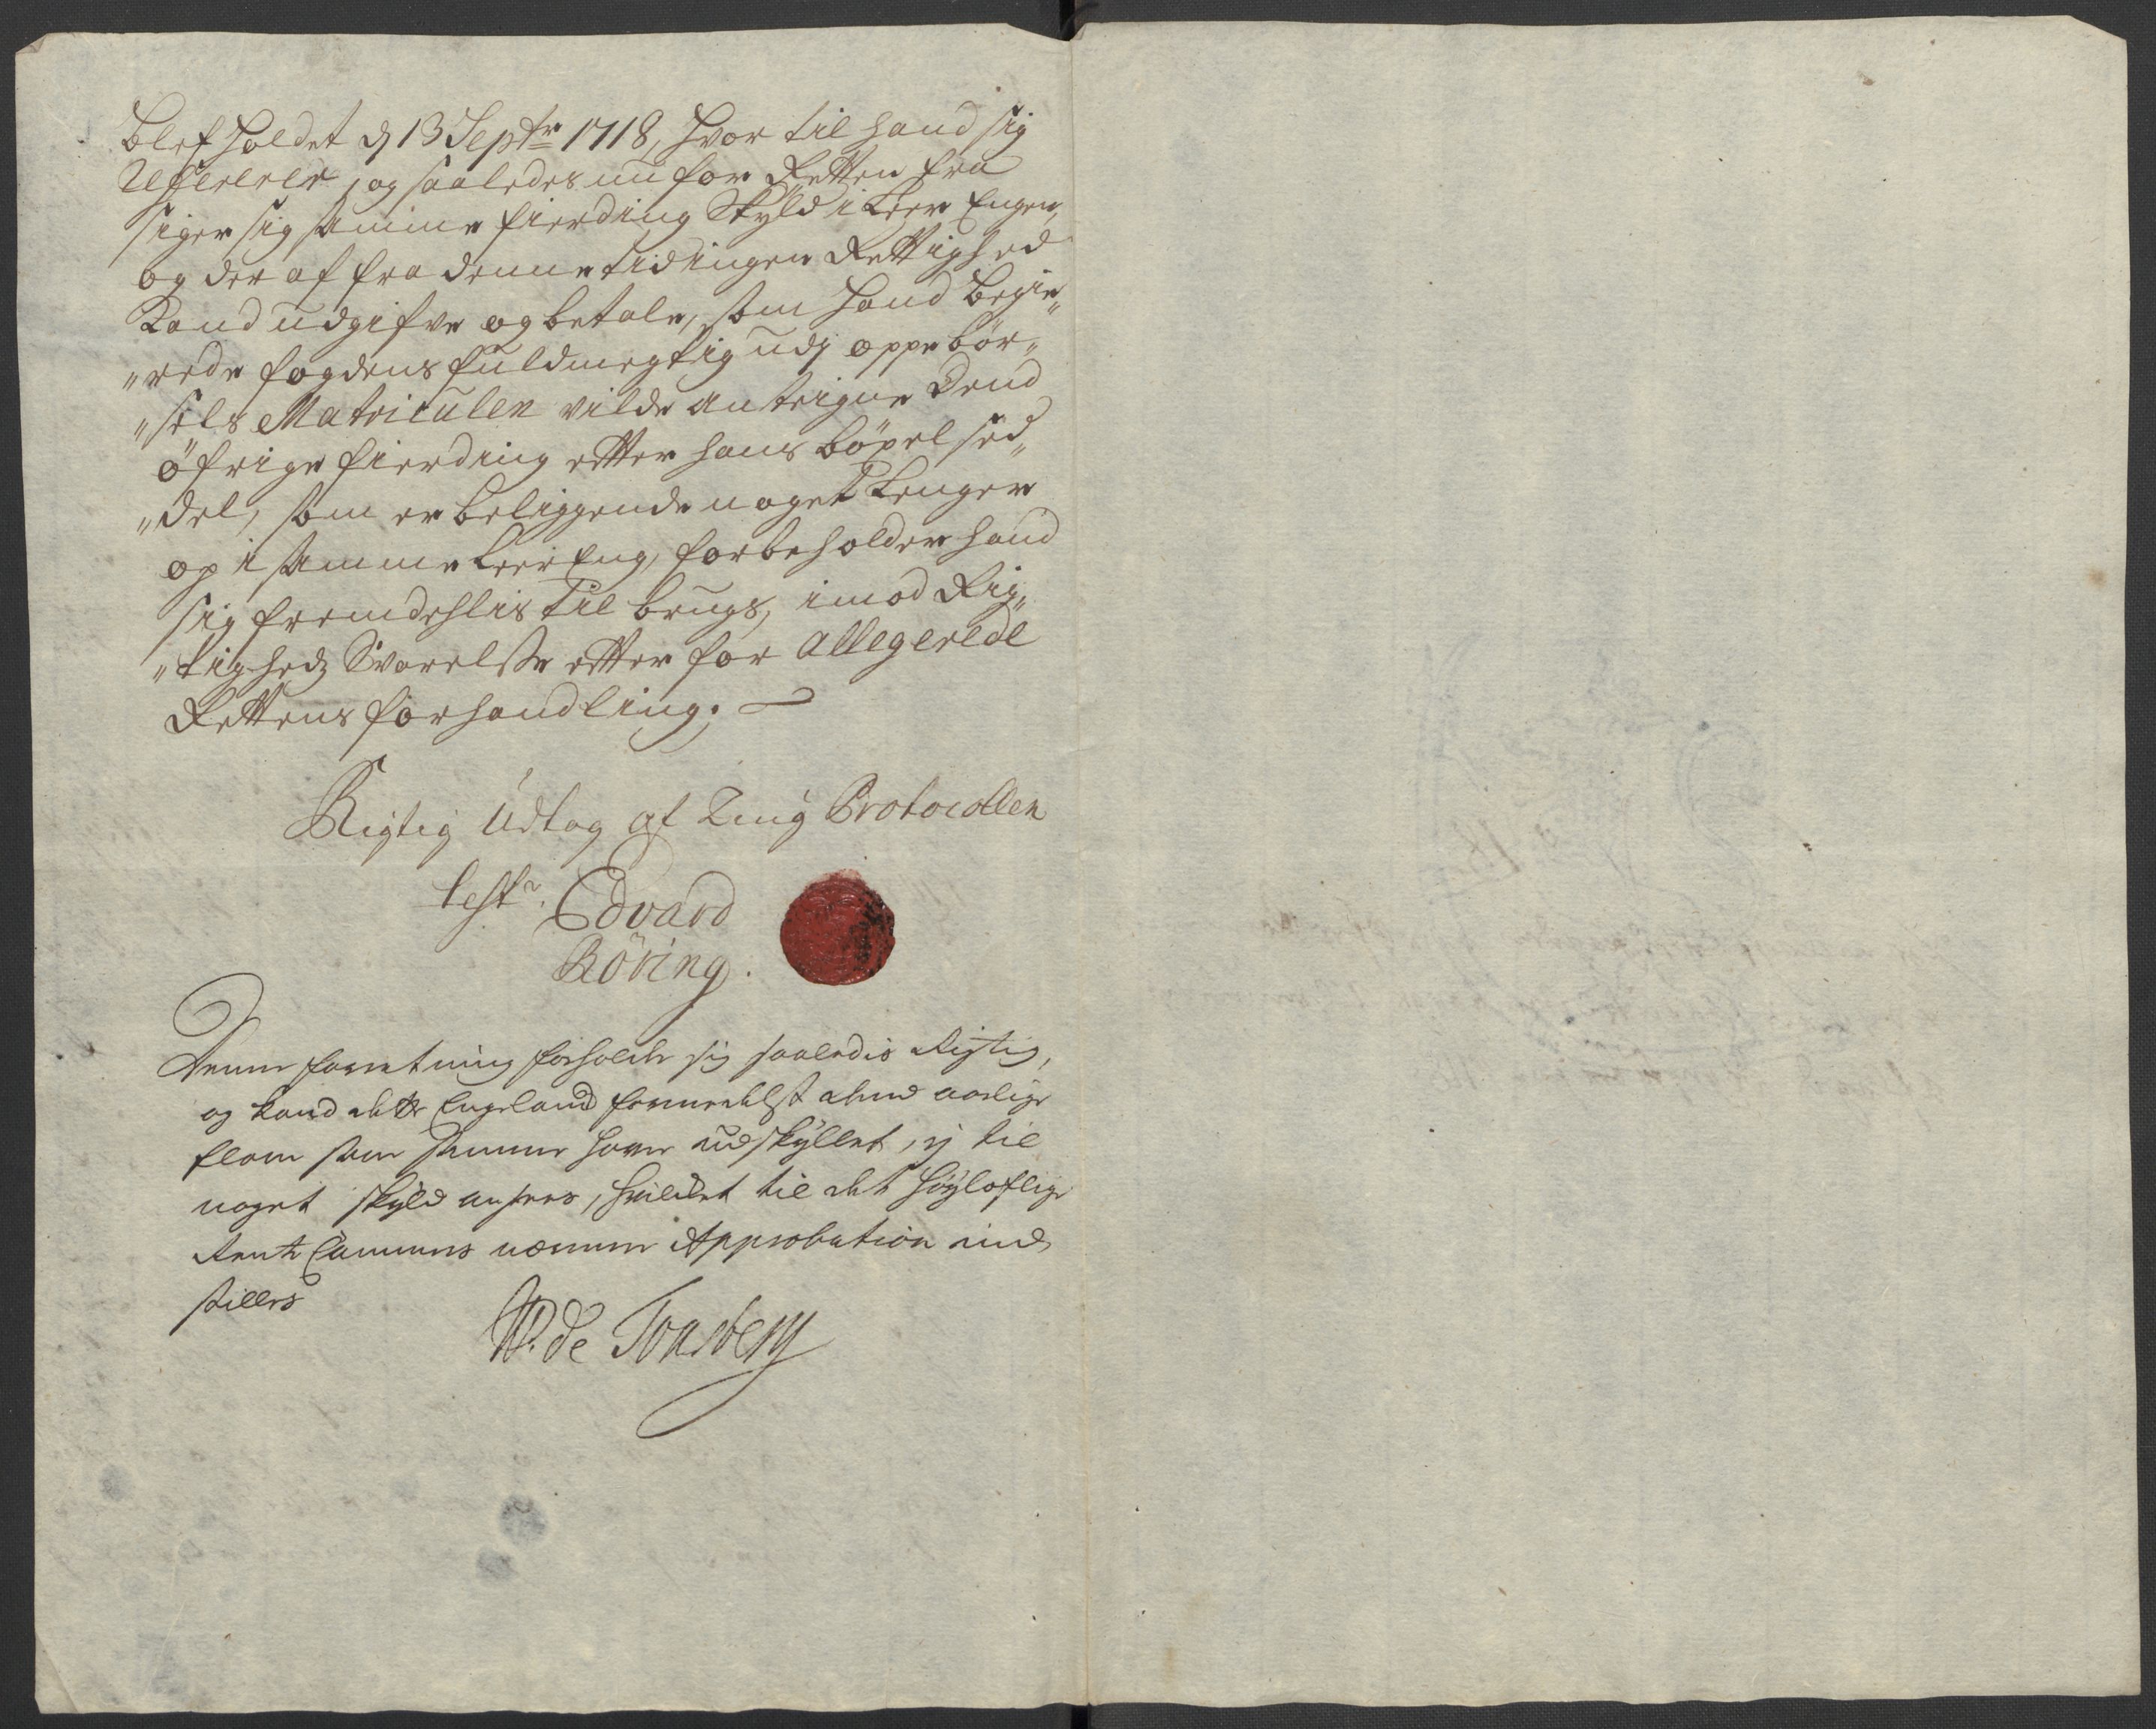 Blef holdet d 13 Septr 1718, hvor til hand sig
Refererer, og saaledes nu for Retten fra
siger sig samme fierding Skyld i Leer Engen,
og der af fra denne tid ingen Rettighed
kand udgifve og betale, som hand begie„
„rede fogdens fuldmegtig udj oppebør„
„sels Matriculen vilde anteigne Dend
öfrige fierding etter hans böxel sed„
„del, som er beliggende noget Lenger
op i samme Leer Eng, forbeholder hand
sig fremdehlis til brugs, imod Rig„
„tigheds Svarelse etter for allegerede
Rettens forhandling.
Rigtig Udtog af Ting Protocollen
test. Edvard
Röring.
Denne forretning forholder sig saaledis Rigtig,
og kand dette Engeland formedelst dend aarlige
flom som samme haver udskyllet, ej til
noget skyld ansees, hvilket til det höyloflige
Rente Cammers nærmere Approbation ind
stilles
W. de Tonsberg